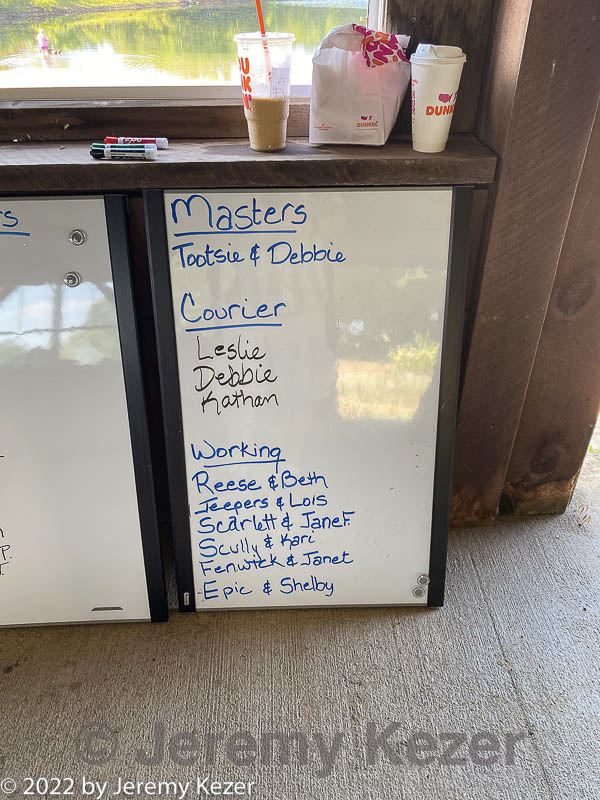 DUNKIN'
DUNKIN'
DUNKIN'
rs
Masters
Tootsie & Debbie
Courier
Leslie
Debbie
Kathan
Working
Reese & Beth
Jeepers & Lois
Scarlett & Janet F.
Scully & Kari
Fenwick & Janet
Epic & Shelby
© Jeremy Kezer
© 2022 by Jeremy Kezer